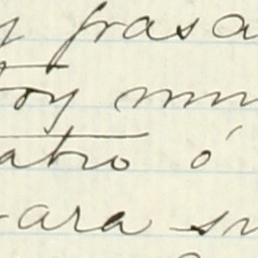 y grasa
toy mu
atro ó
ara su